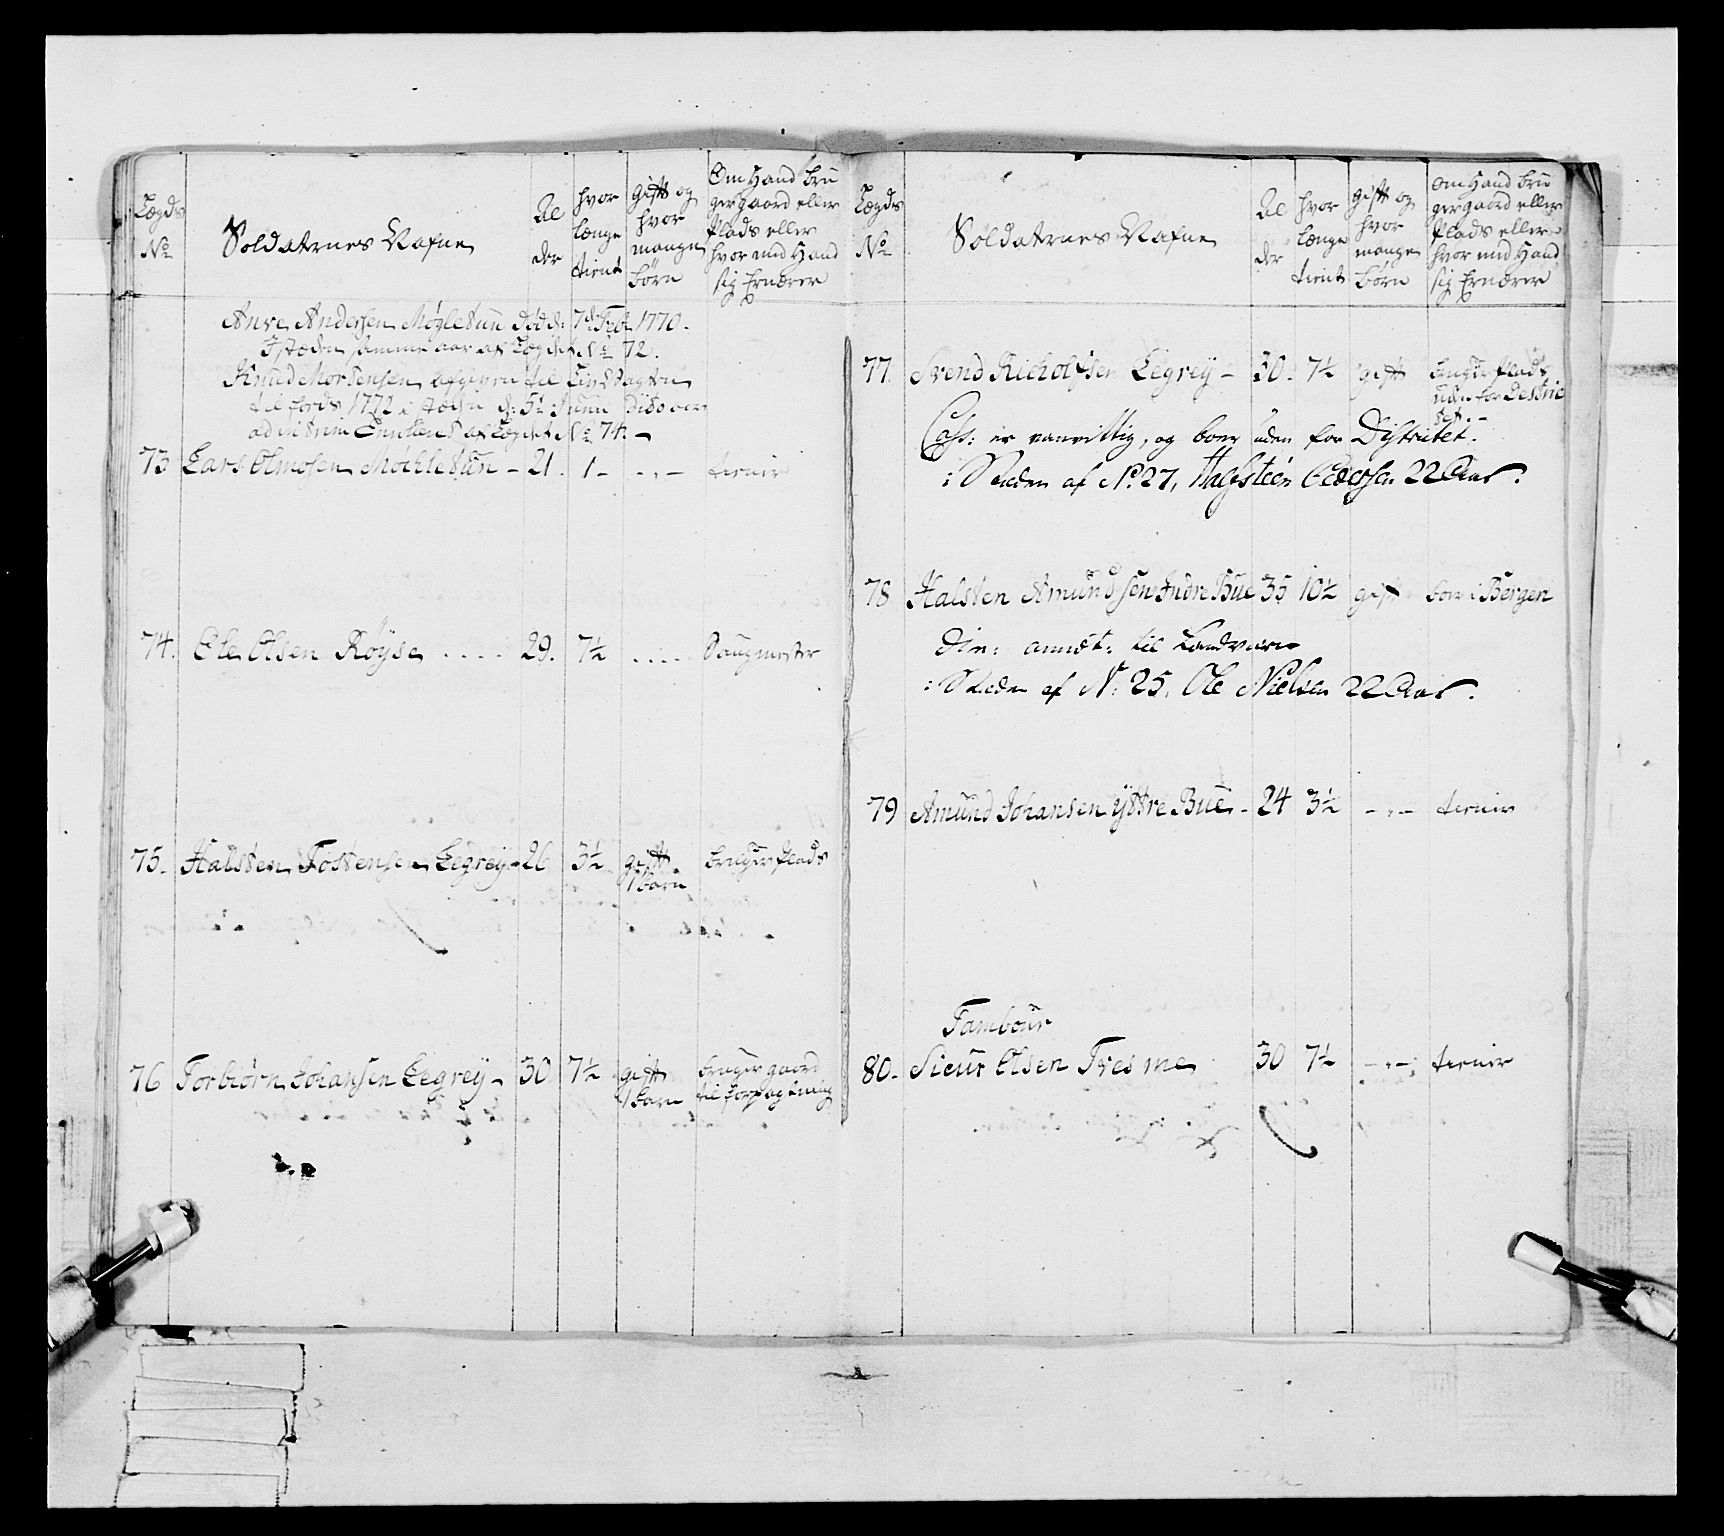 Lægds
No
Soldaternes Nafne
Al
der
hvor
længe
tient
gift og
hvor
mange
børn
Om Hand bru
ger gaard eller
Plads eller
hvor med Hand
sig Ernærer
Anve Andersen Møgletuun død d: 7de Febr 1770.
Istæden samme aar af Lægdet No 72.
Knued Mortensen afgiven til Liv Vagten
til fords 1772 i stæden d: 5te Junii
af Lægdet No 74. -
73 Lars Olmosen Møchletuun - 21. 1 - - " - tienir
74. Ole Olsen Röyse . . . . 29. 7½ . . . . Saugmester
75. Halsten Tostensen Legrey - 26 3½ gift bruger Plads
1 barn
76 Torbiørn Johansen Legrey - 30 7½ gift bruger gaard
1 barn til forpagtning
Lægds
No
Soldaternes Nafne
Al
der
hvor
længe
tient
gift og
hvor
mange
børn
Om Hand bru
ger gaard eller
Plads eller
hvor med Hand
sig Ernærer
77. Svend Richolfsen Legrey - 30. 7½ gift bruger Plads
uden for Destric
tet. -
Cass: er vanvittig, og boer uden for Distritet.
i Steden af No. 27, Halfsteen Pedersen 22 Aar.
78 Halsten Amundsen Indre Bue 35 10½ gift boer i Bergen
Dim: annot: til Landværn
i Steden af N: 25, Ole Nielsen 22 Aar.
79 Amund Johansen Yttre Bue - 24 3½ - " - tienir
Tambour
80. Sicur Olsen Tresme 30 7½ - " - tienir